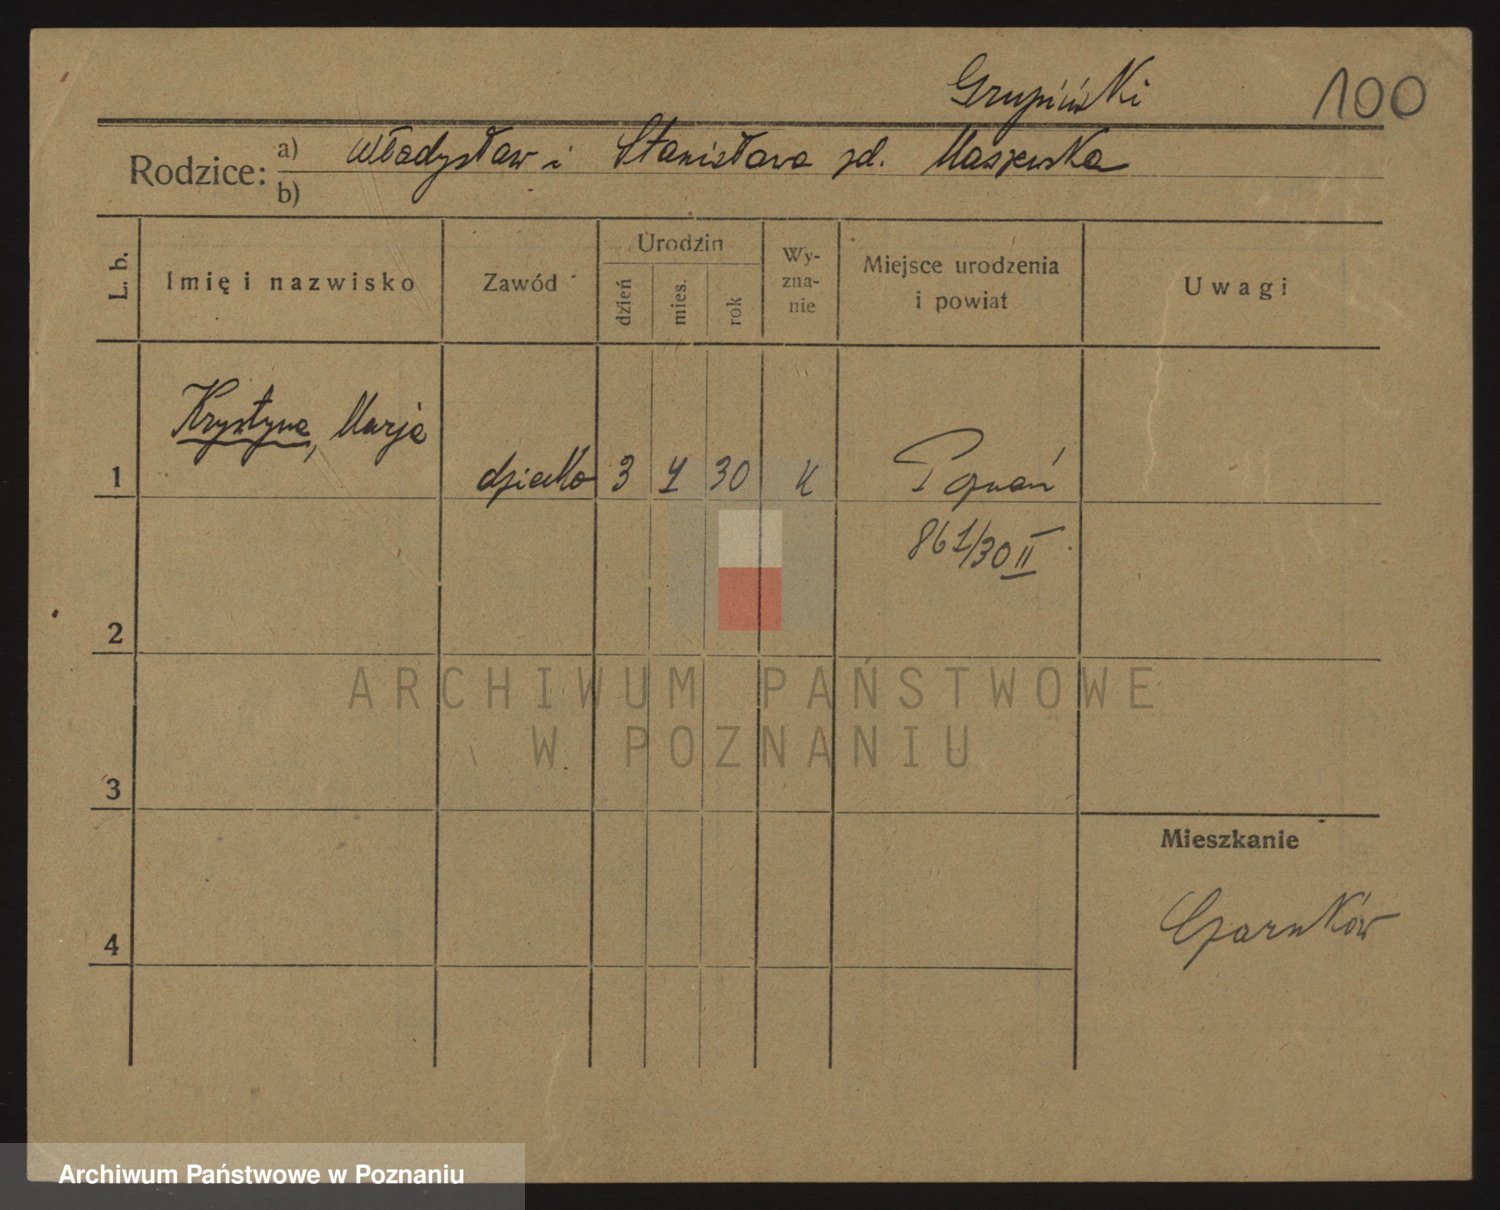 Grupiński 100
Rodzice: a) Władysław i Stanisława zd. Maszewska
b)
L. b. Imię i nazwisko Zawód Urodzin dzień mies. rok Wy-zna-nie Miejsce urodzenia i powiat Uwagi
Krystyna, Marja
1 dziecko 3 4 30 K Poznań
861/30 II
2
ARCHIWUM PAŃSTWOWE
W POZNANIU
3
Mieszkanie
Czarnków
4
Archiwum Państwowe w Poznaniu